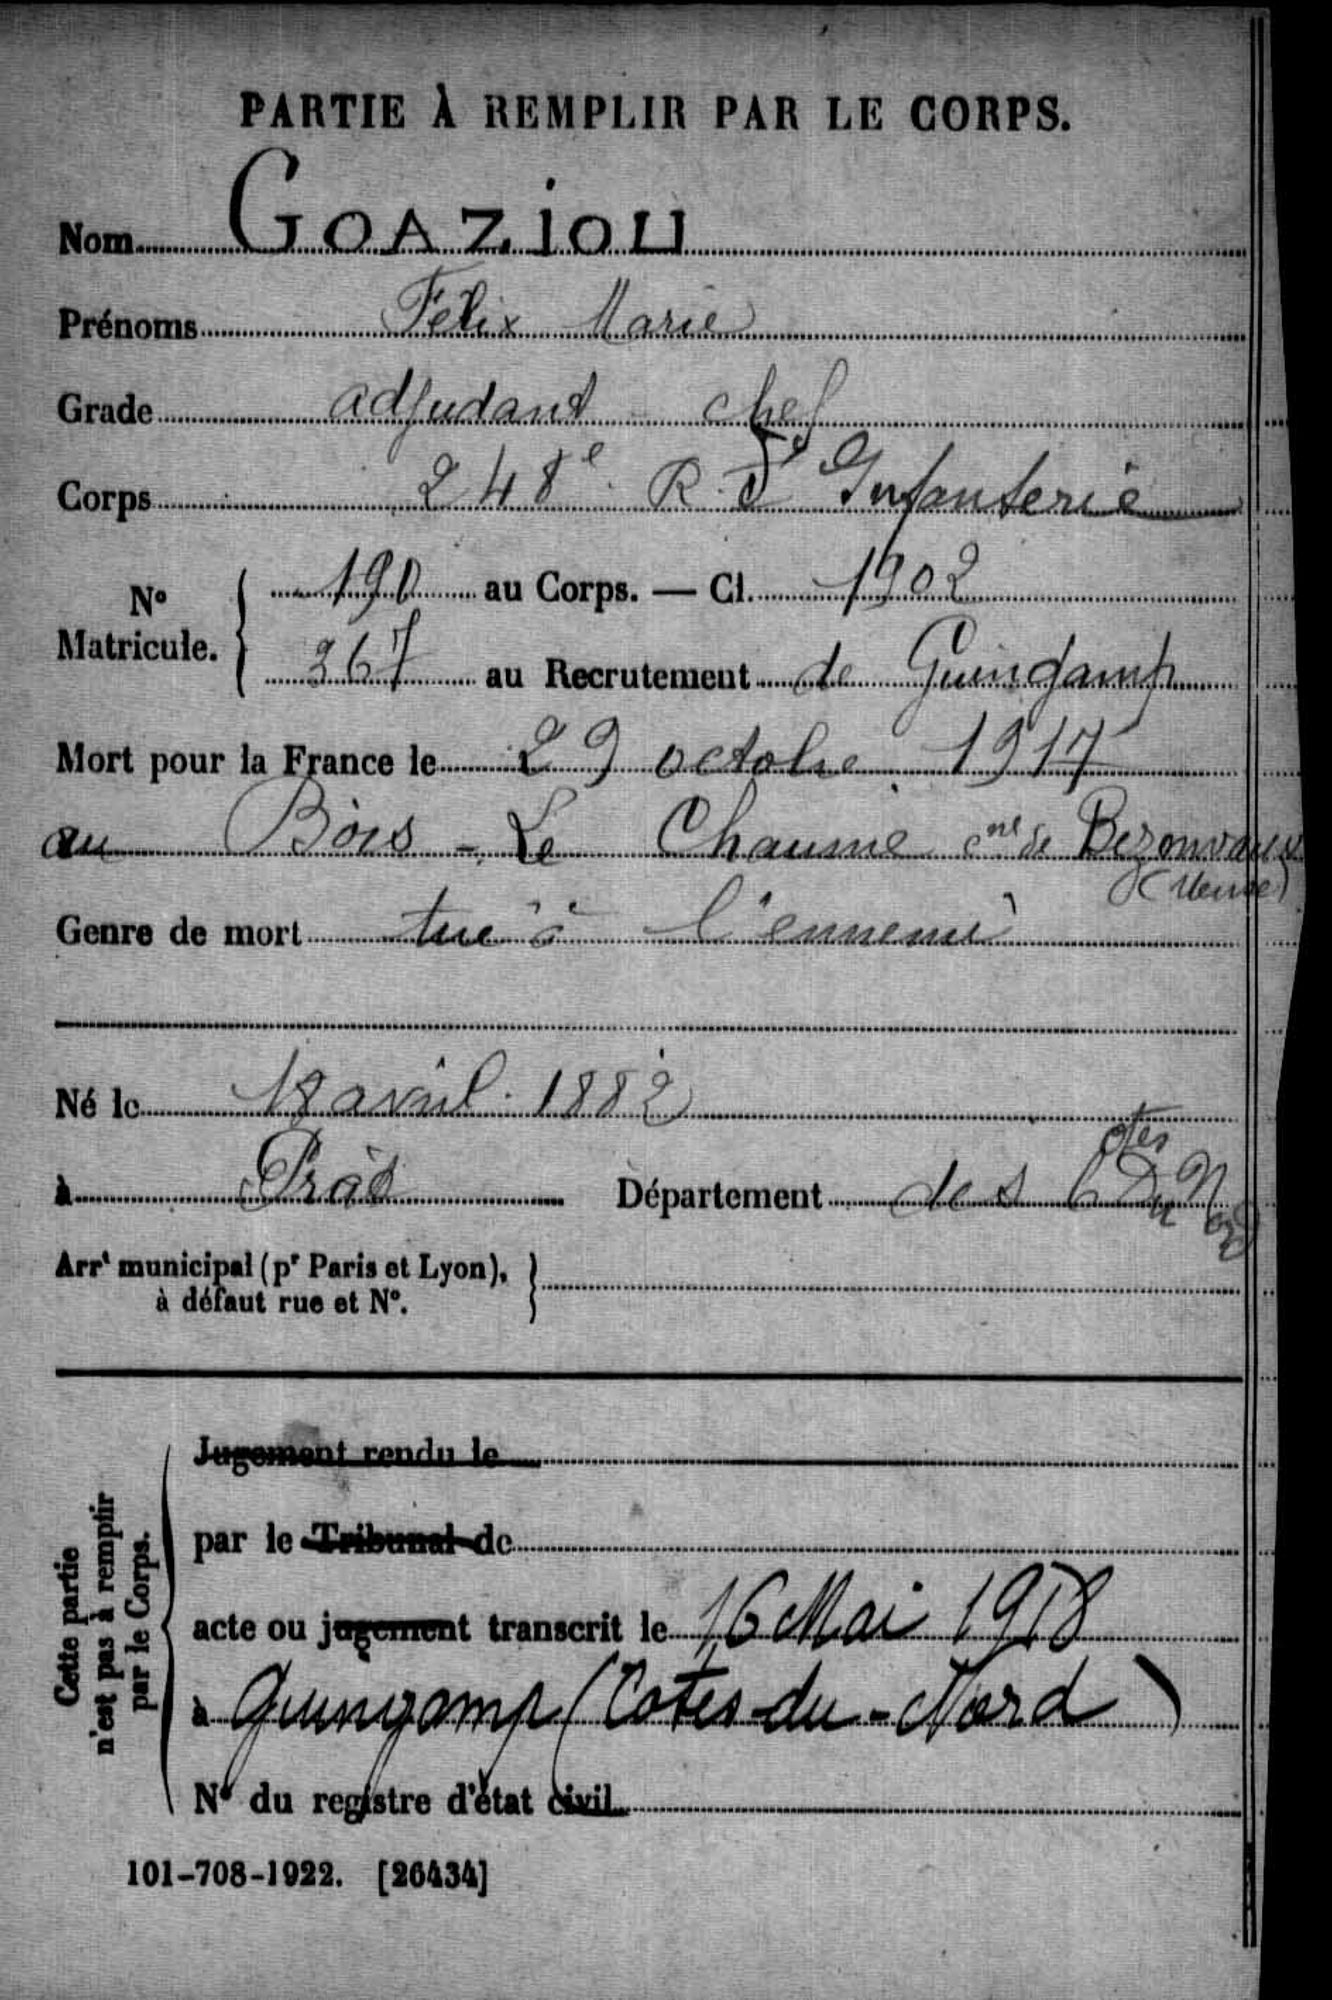 PARTIE À REMPLIR PAR LE CORPS.
Nom GOAZIOU
Prénoms Félix Marie
Grade adjudant chef
Corps 248e R. d' Infanterie
N° Matricule. { 190 au Corps. — Cl. 1902
367 au Recrutement de Guingamp
Mort pour la France le 29 octobre 1917
au Bois - Le Chaume cne de Bezonvaux
(Meuse)
Genre de mort tué à l'ennemi
Né le 18 avril 1882
à Prat Département des Ctes Du Nord
Arrt municipal (pr Paris et Lyon), }
à défaut rue et N°.
Cette partie
n'est pas à remplir
par le Corps.
Jugement rendu le
par le Tribunal de
acte ou jugement transcrit le 16 Mai 1918
à Guingamp (Cotes-du-Nord)
N° du registre d'état civil
101-708-1922. [26434]